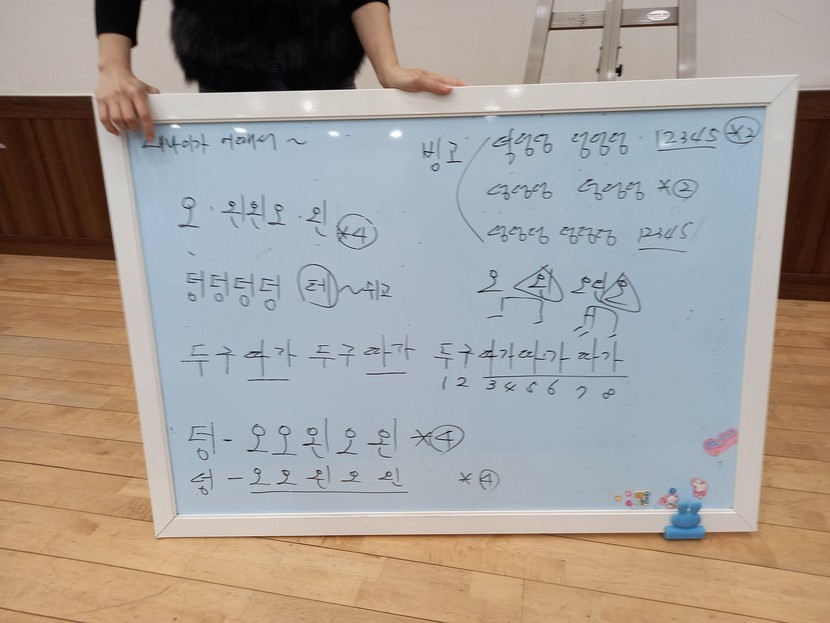 내나이가 어때서 ~
오 · 왼왼오 · 왼 *4
덩덩덩덩 테~쉬고
두구따가 두구따가 두구따가따가따가
1 2 3 4 5 6 7 8
덩 - 오오왼오왼 *4
덩 - 오오왼오왼 *4
빙고
덩덩 덩덩덩 12345 *2
덩덩덩 덩덩덩 *2
덩덩덩 덩덩덩 12345
오 왼 오왼오